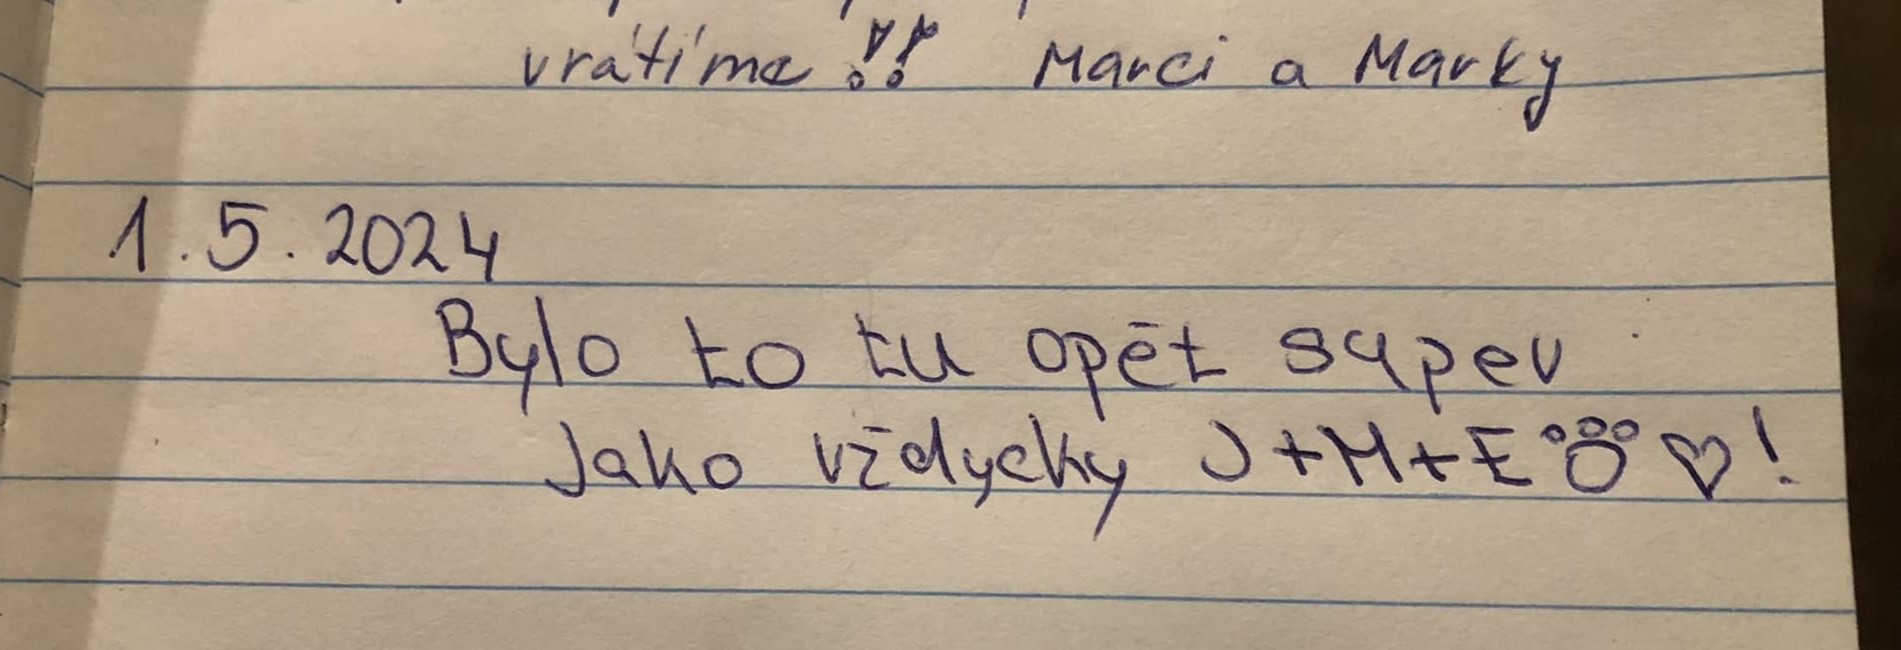 vrátíme !! Marci a Marky
1.5.2024
Bylo to tu opět super
Jako vždycky J+M+E ♡!